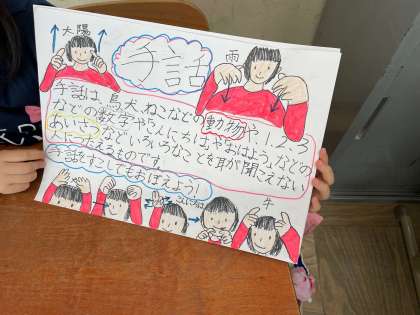 太陽
手話
雨
手話は、鳥、犬、ねこなどの動物や、1、2、3
などの数字やこんにちはやおはようなどの
あいさつなどいろいろなことを耳が聞こえない
人に伝えるものです。
手話をすこしでもおぼえよう!